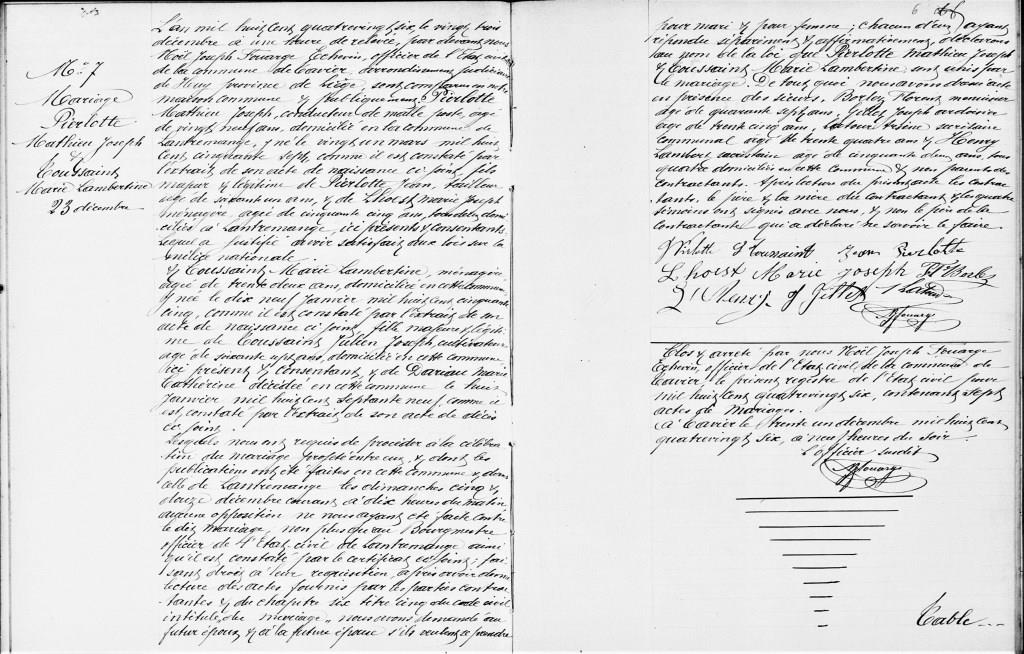 N° 7
Mariage
Pirlotte
Mathieu Joseph
&
Toussaint
Marie Lambertine
23 décembre
L'an mil huit cent quatrevingt six, le vingt trois
décembre à une heure de relevée, par devant nous
Noël Joseph Fouarge Echevin, officier de l'Etat civil
de la commune de Xavier, arrondissement judiciaire
de Huy province de Liège, sont comparus en notre
maison commune & publiquement Pirlotte
Mathieu Joseph, conducteur de malle poste, âgé
de vingt neuf ans, domicilié en la commune de
Lantremange, y né le vingt un mars mil huit
cent cinquante sept, comme il est constaté par
l'extrait de son acte de naissance ci joint, fils
majeur & légitime de Pirlotte Jean, tailleur
âgé de soixante un ans, & de Lhoest Marie Joseph
ménagère, âgée de cinquante cinq ans, tous deux domi
ciliés à Lantremange, ici présents & consentants
lequel a justifié avoir satisfait aux lois sur la
milice nationale.
& Toussaint Marie Lambertine, ménagère
âgée de trente deux ans, domiciliée en cette commune
y née le dix neuf Janvier mil huit cent cinquante
cinq, comme il est constaté par l'extrait de son
acte de naissance ci joint, fille majeure & légiti
me de Toussaint Julien Joseph, cultivateur
âgé de soixante sept ans, domicilié en cette commune
ici présent & consentant, & de Dariau Marie
Cathérine décédée en cette commune le huit
Janvier mil huit cent septante neuf, comme il
est constaté par l'extrait de son acte de décès
ci joint.
Lesquels nous ont requis de procéder à la célébra
tion du mariage projeté entre eux, & dont les
publications ont été faites en cette commune & dans
celle de Lantremange les dimanches cinq &
douze décembre courant à dix heures du matin
aucune opposition ne nous ayant été faite contre
le dit mariage, non plus qu'au Bourgmestre
officier de l'Etat civil de Lantremange ainsi
qu'il est constaté par le certificat ci joint, fai
sant droit à leur réquisition, après avoir donné
lecture des actes fournis par les parties contrac
tantes & du chapitre six titre cinq du code civil
intitulé du mariage, nous avons demandé au
futur époux & à la future épouse s'ils veulent se prendre
6
pour mari & pour femme; chacun d'eux ayant
répondu séparément & affirmativement, déclarons
au nom de la loi que Pirlotte Mathieu Joseph
& Toussaint Marie Lambertine sont unis par
le mariage. De tout quoi nous avons dressé acte
en présence de sieurs, menuisier
âgé de quarante sept ans, Gillet Joseph
âgé de trente cinq ans, secrétaire
communal âgé de trente quatre ans & Henry
Lambert âgé de cinquante deux ans, tous
quatre domiciliés en cette commune & non parents des
contractants. Après lecture du présent acte les contrac
tants, le père & la mère du contractant & les quatre
témoins ont signé avec nous, & non le père de la
contractante qui a déclaré ne savoir le faire.
Pirlotte Toussaint Jean Pirlotte
Lhoest Marie Joseph
L Henry J Gillet
NJ Fouarge
Clos & arrêté par nous Noël Joseph Fouarge
Echevin, officier de l'Etat civil, de la commune de
Xavier le présent registre de l'Etat civil pour
mil huit cent quatrevingt six, contenant sept
actes de mariages.
A Xavier le trente un décembre mil huit cent
quatrevingt six, à neuf heures du soir.
L'officier susdit
NJ Fouarge
Table